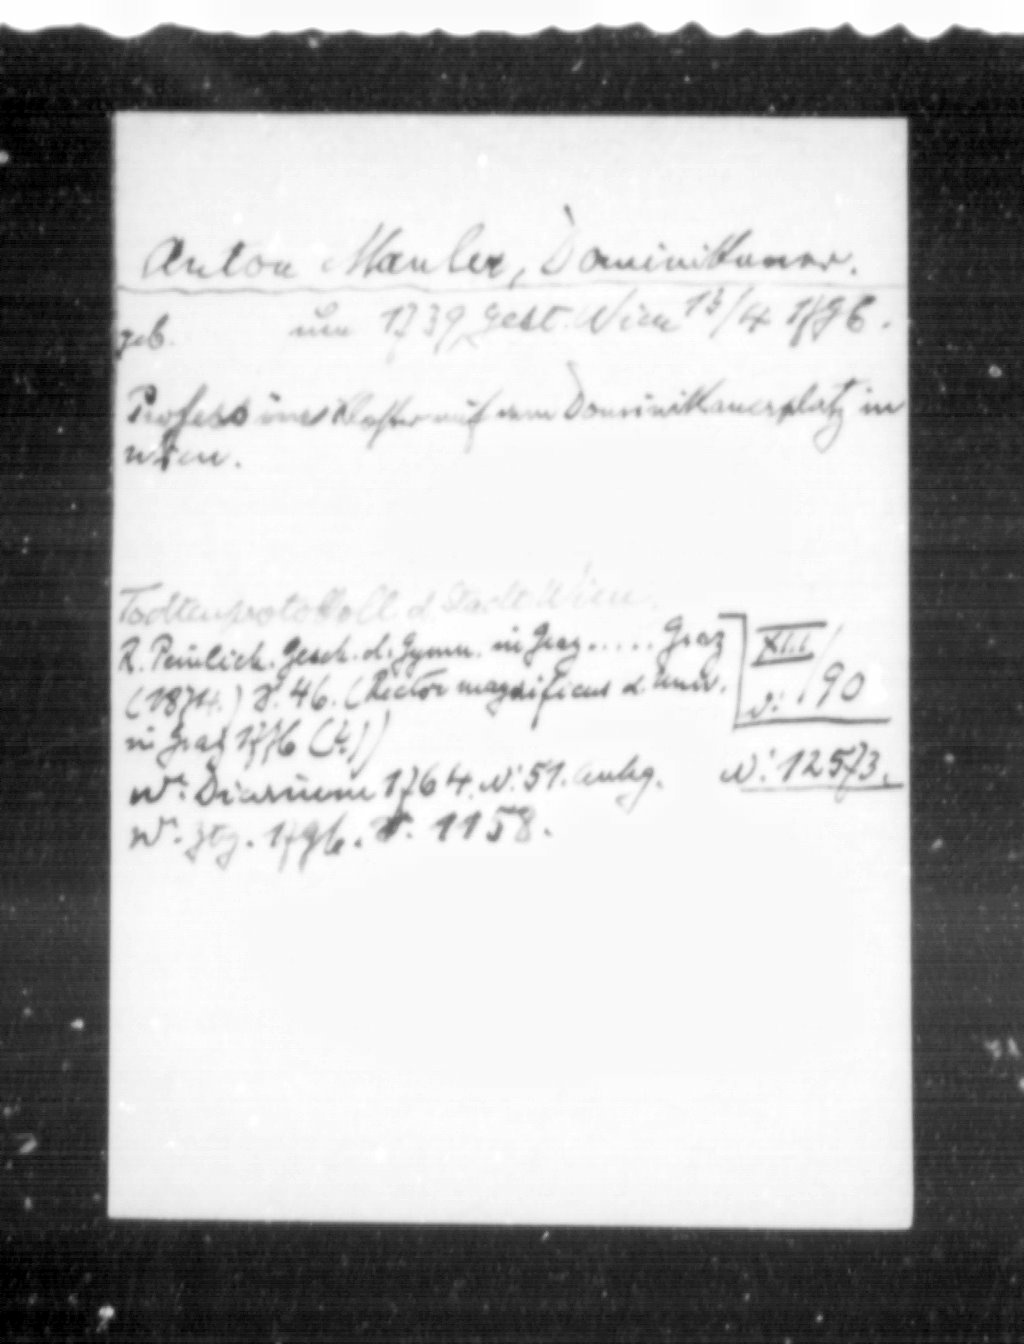 Anton Mauler, Dominikaner.
geb. um 1739 gest. Wien 13/4 1796.
Profess im Kloster auf dem Dominikanerplatz in
Wien.
Todtenprotokoll d. Stadt Wien.
R. Peinlich. Gesch. d. Gymn. in Graz ..... Graz
(1874.) S. 46. (Rector magnificus d. Univ.
in Graz 1776 (!))
N: 190
W. Diarium 1764. N: 51. Anhg. N: 12573.
W. Ztg. 1796. S. 1158.